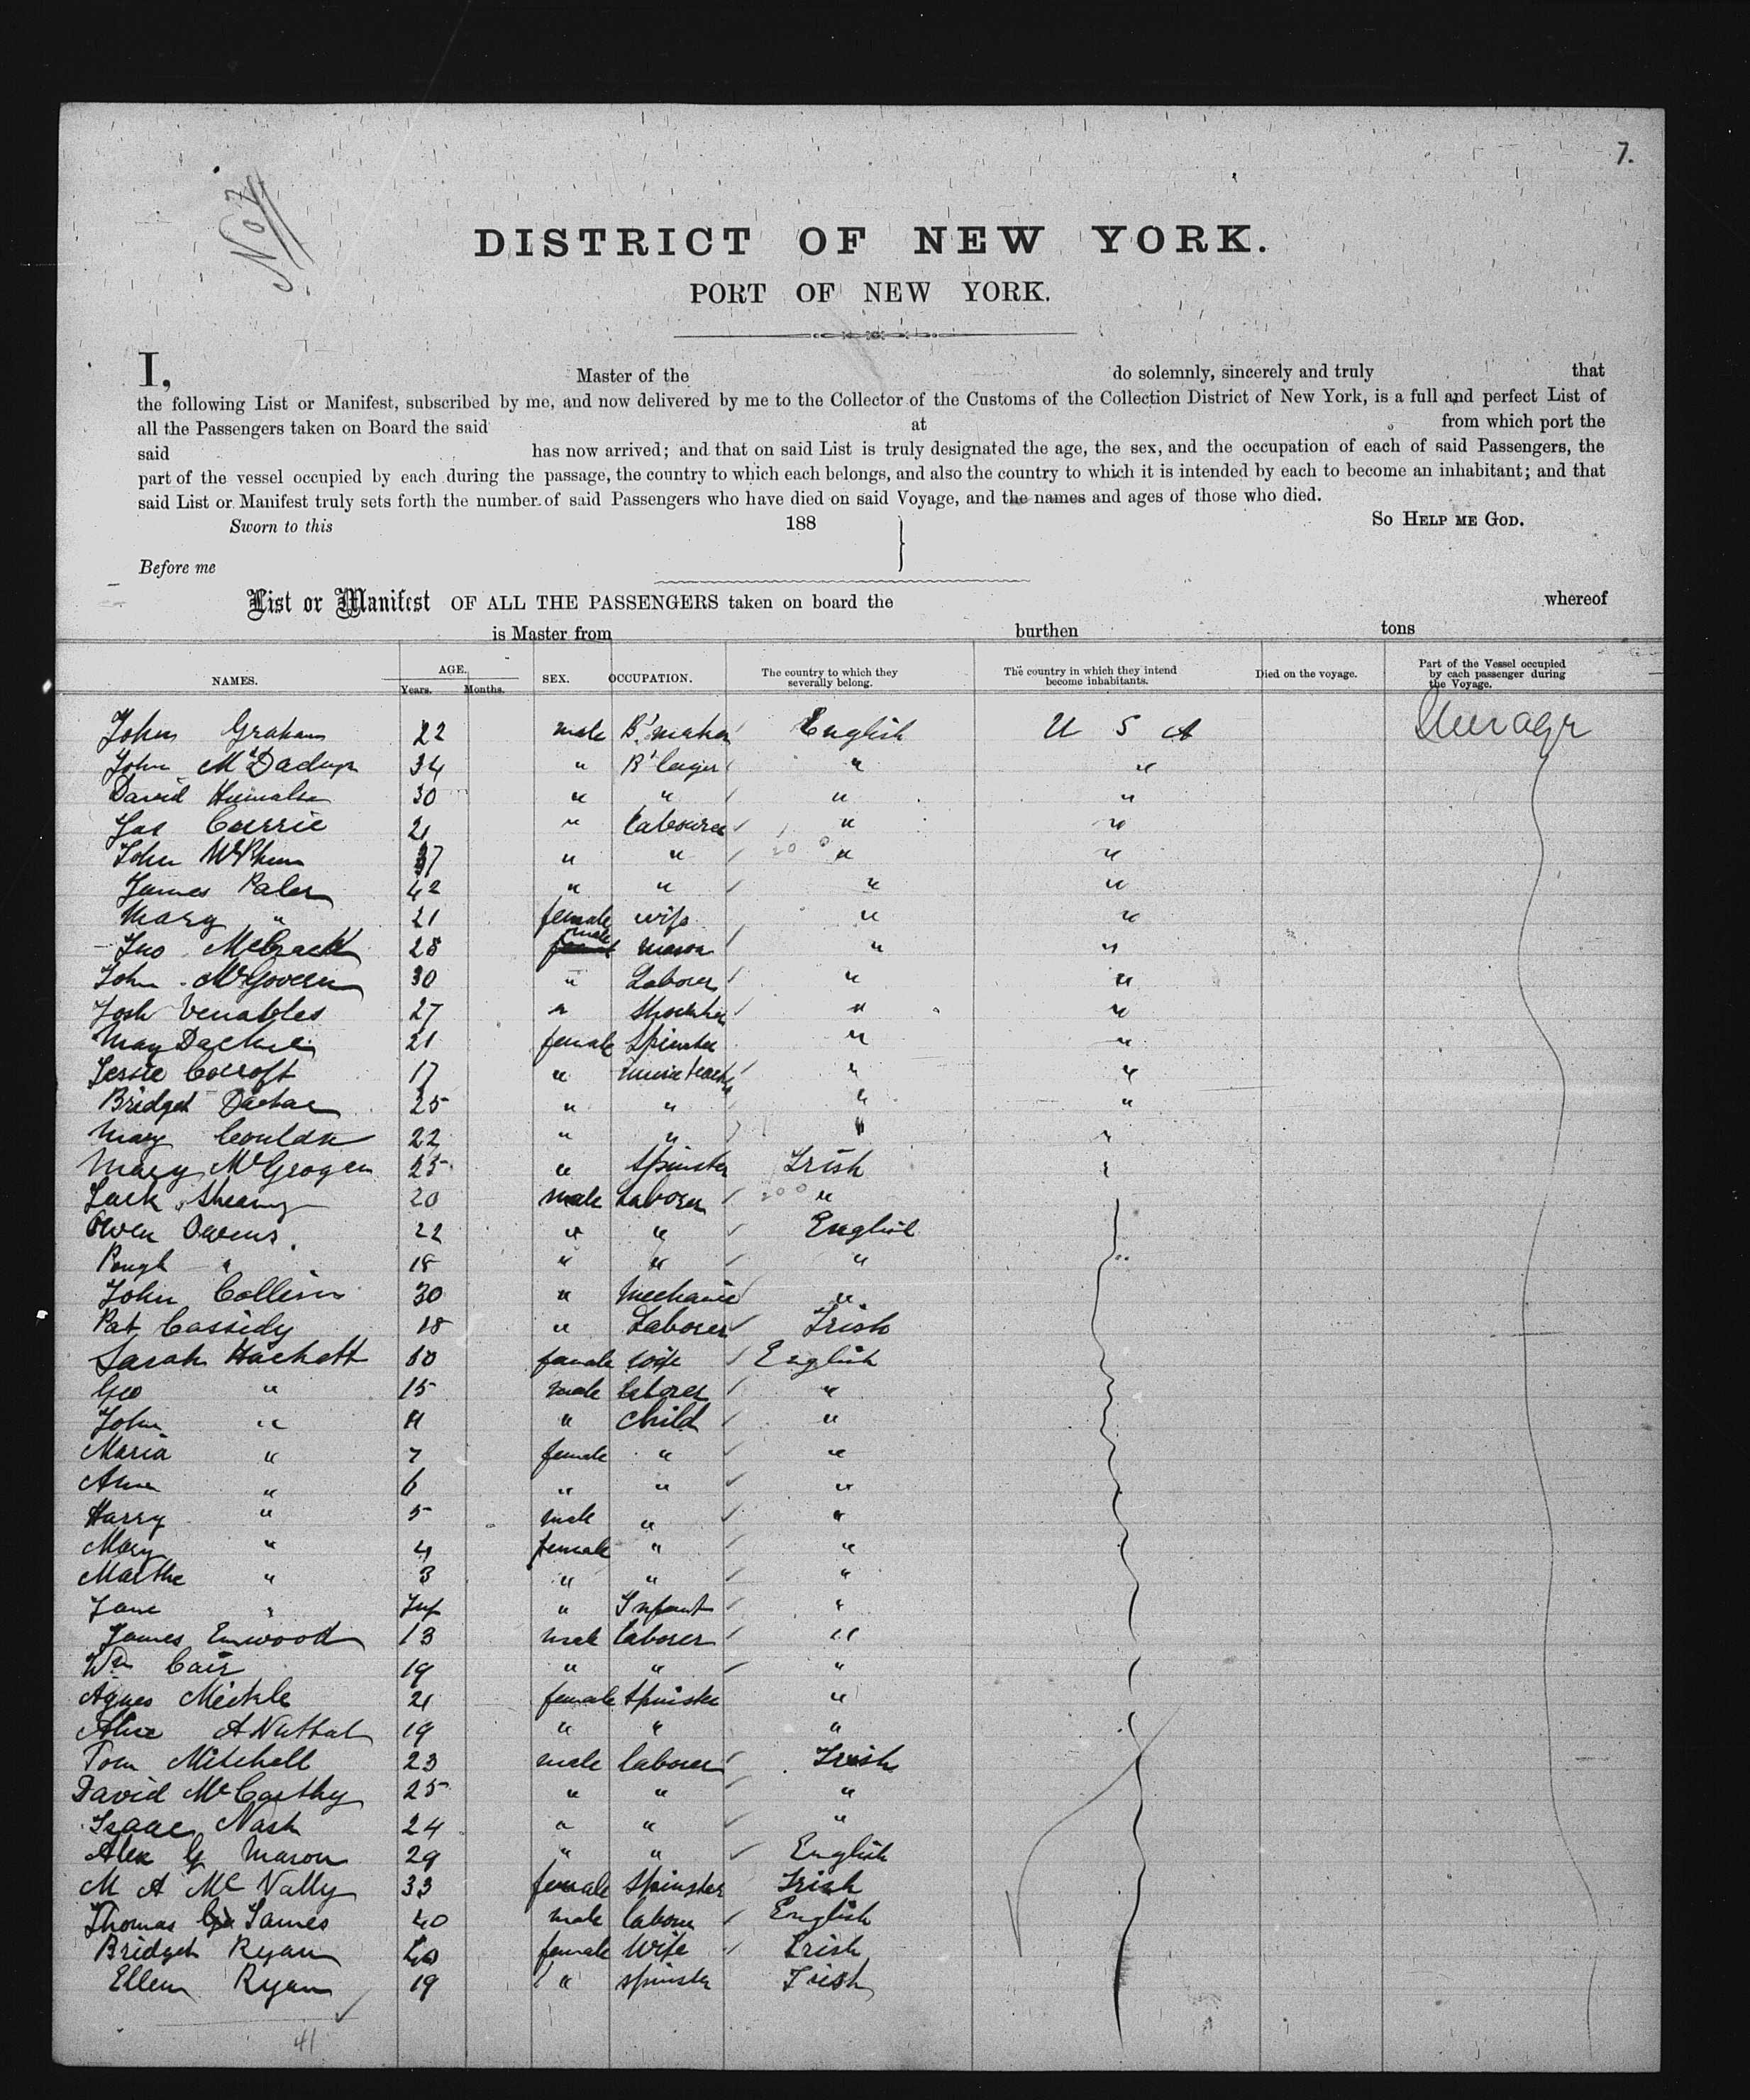 7.
No 7
DISTRICT OF NEW YORK.
PORT OF NEW YORK.
I, Master of the do solemnly, sincerely and truly that
the following List or Manifest, subscribed by me, and now delivered by me to the Collector of the Customs of the Collection District of New York, is a full and perfect List of
all the Passengers taken on Board the said at from which port the
said has now arrived; and that on said List is truly designated the age, the sex, and the occupation of each of said Passengers, the
part of the vessel occupied by each during the passage, the country to which each belongs, and also the country to which it is intended by each to become an inhabitant; and that
said List or Manifest truly sets forth the number of said Passengers who have died on said Voyage, and the names and ages of those who died.
Sworn to this 188 So HELP ME GOD.
Before me
List or Manifest OF ALL THE PASSENGERS taken on board the whereof
is Master from burthen tons
NAMES. AGE. Years. Months. SEX. OCCUPATION. The country to which they severally belong. The country in which they intend become inhabitants. Died on the voyage. Part of the Vessel occupied by each passenger during the Voyage.
John Graham 22 male B'maker English U S A
John 34 " B'layer " "
David 30 " " " "
Jas Currie 21 " Labourer " "
John 37 " " " "
James 42 " " " "
Mary " 21 female wife " "
Jno 28 male mason " "
John McGovern 30 " Laborer " "
Josh Venables 27 " " "
May 21 female Spinster " "
Jessie 17 " " "
Bridget 25 " " " "
Mary 22 " " " "
Mary McGrogan 25 " Spinster Irish "
20 male Laborer "
Owen Owens 22 " " English
" 18 " " "
John Collins 30 " Mechanic "
Pat Cassidy 18 " Laborer Irish
Sarah Hackett female wife English
Geo " 15 male laborer "
John " " child "
Maria " 7 female " "
" 6 " " "
Harry " 5 male " "
Mary " 4 female " "
Martha " 3 " " "
Jane " Inf " Infant "
James Enwood 13 male laborer "
Wm 19 " " "
Agnes Meikle 21 female Spinster "
Alice A Nuttal 19 " " "
Tom Mitchell 23 male laborer Irish
David McCarthy 25 " " "
Isaac Nash 24 " " "
Alex G Mason 29 " " English
M A Mc Nally 33 female Spinster Irish
Thomas James 40 male labour English
Bridget Ryan female Wife Irish
Ellen Ryan 19 " spinster Irish
41